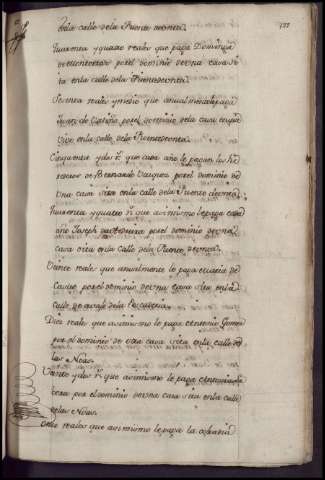 en la calle de la Puente
Quarenta y quatro reales que paga Dominga
de Monterroso por el dominio de una casa si
ta en la calle de la Puente
Setenta reales y medio que anualmente paga
Juan de por el dominio de la casa en que
vive en la calle de la Puente
y dos rs que cada año le pagan los he
rederos de Bernardo Vazquez por el dominio de
una casa sita en la calle de la Puente
Quarenta y quatro rs que asimismo le paga cada
año Joseph por el dominio de una
casa sita en la calle de la Puente
Veinte reales que anualmente le paga Maria de
Castro por el dominio de una casa sita en la
calle de la Pescaderia
Diez reales que asimismo le paga Antonio Gomez
por el dominio de otra casa sita en la calle de
las Nobas
Veinte y dos rs que asimismo le paga
por el dominio de una casa sita en la calle
de las Nobas
Ocho reales que asimismo le paga la cofradia